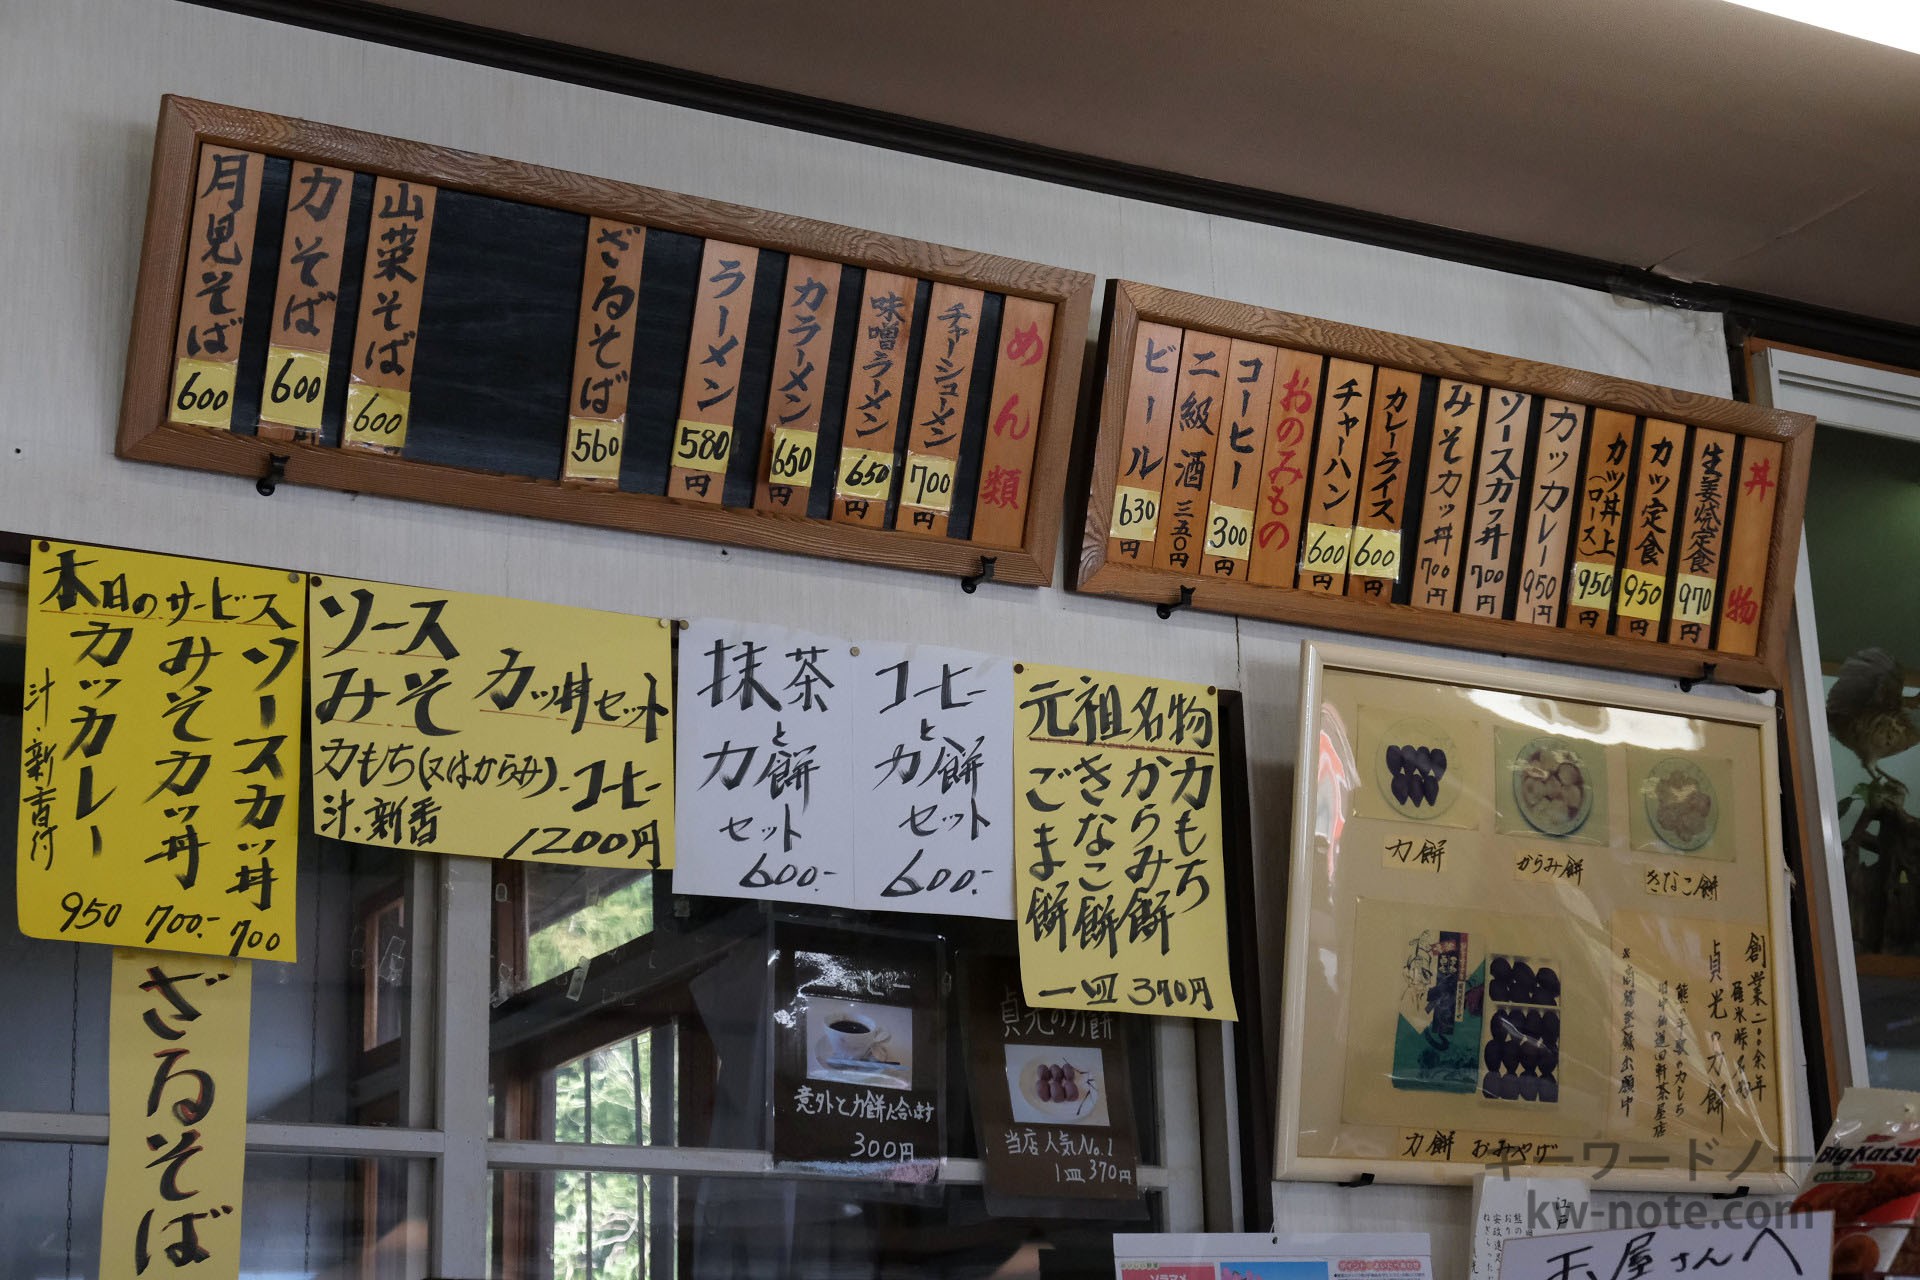 めん類
チャーシューメン 700円
味噌ラーメン 650円
力ラーメン 650円
ラーメン 580円
ざるそば 560
山菜そば 600
力そば 600
月見そば 600
丼物
生姜焼定食 970円
カツ定食 950円
カツ丼上(ロース) 950円
カツカレー 950円
ソースカツ丼 700円
みそカツ丼 700円
カレーライス 600円
チャーハン 600円
おのみもの
コーヒー 300円
二級酒 三五〇円
ビール 630円
本日のサービス
ソースカツ丼 700
みそカツ丼 700.-
カツカレー 950
汁.新香付
ざるそば
ソース
みそ
カツ丼セット
力もち(又はからみ).コーヒー
汁.新香
1200円
抹茶
と
力餅
セット
600.-
コーヒー
と
力餅
セット
600.-
元祖名物
力もち
からみ餅
きなこ餅
ごま餅
一皿370円
コーヒー
意外と力餅に合います
300円
貞光の力餅
当店人気No.1
1皿370円
力餅
からみ餅
きなこ餅
創業二〇〇余年
碓氷峠名物
貞光の力餅
熊の平駅の力もち
旧中仙道四軒茶屋店
※商標登録出願中
力餅 おみやげ
BigKatsu
玉屋さんへ
ソラマメ
キーワードノー
kw-note.com